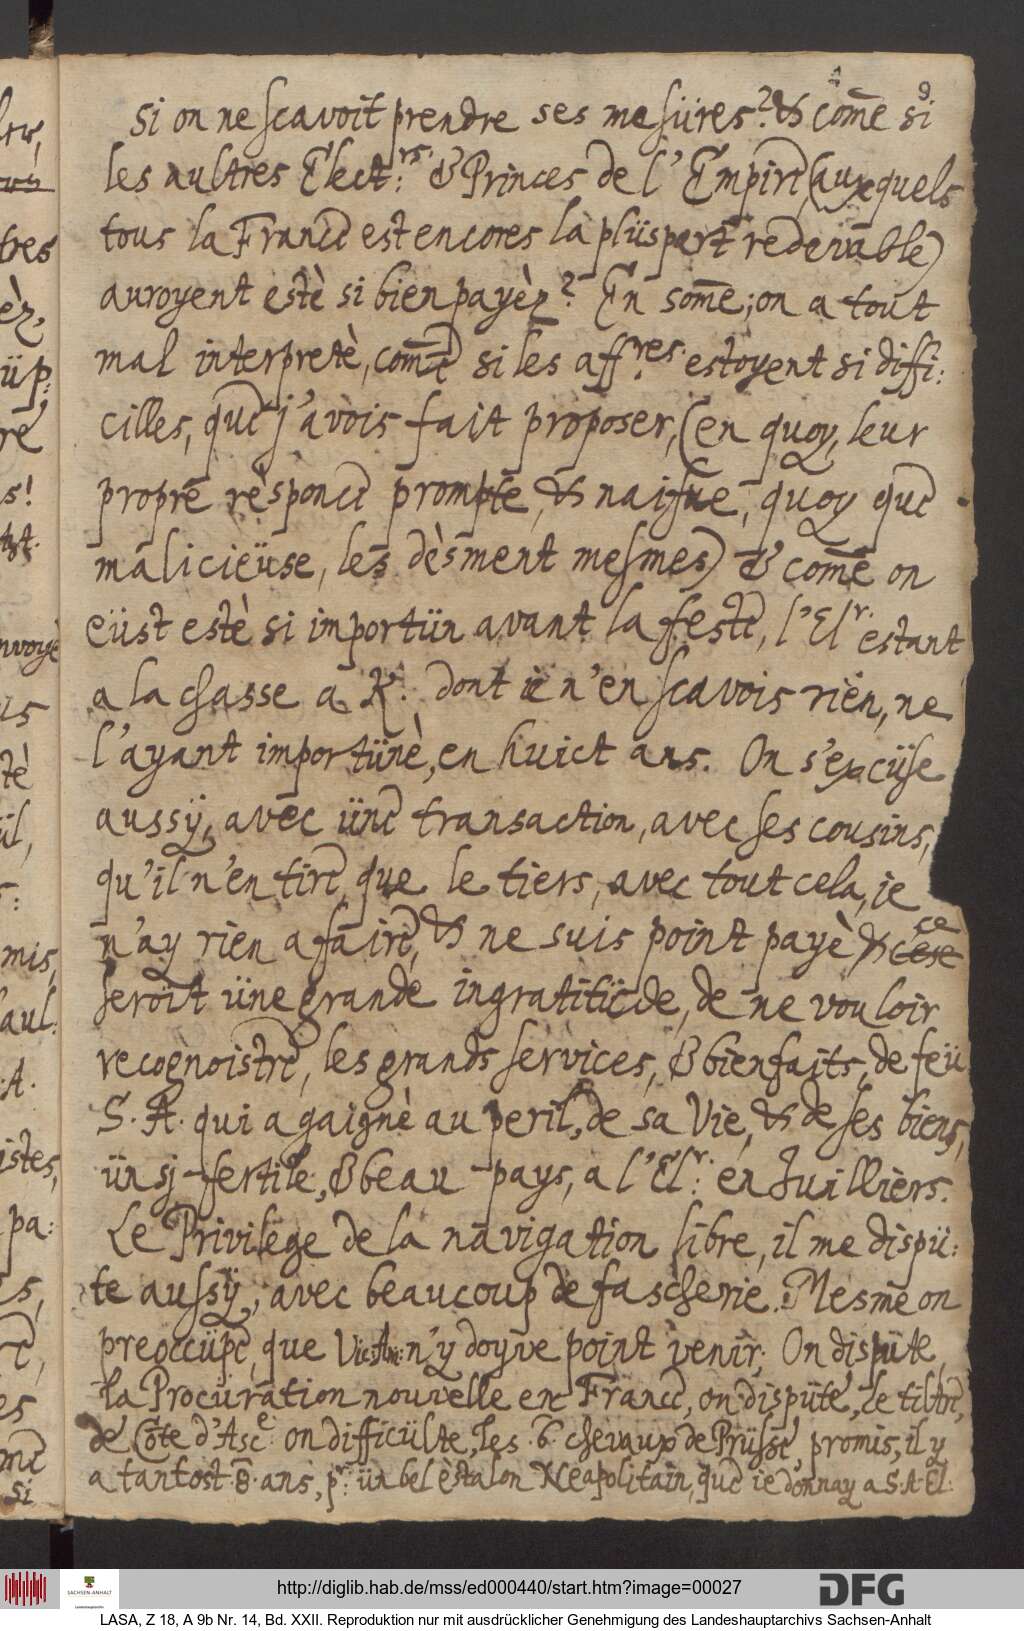 9
Si on ne scavoit prendre ses mesüres? & com̄e si
les aultres Elect:rs. & Princes de l'Empire (auxquels
tous la France est encores la plüspart redevable)
auroyent estè si bien payèz? En som̄e; on a tout
mal interpretè, com̄e si les aff:res. estoyent si diffi:
cilles, que j'avois fait proposer, (en quoy, leur
propre responce prompte, & naifue, quoy que
malicieüse, les dèsment mesmes) & com̄e on
eüst estè si importün avant la feste, l'Elr. estant
a la chasse a K: dont ie n'en scavois rien, ne
l'ayant importünè, en huict ans. On s'excüse
aussÿ, avec üne transaction, avec ses cousins,
qu'il n'en tire, que le tiers, avec tout cela, je
n'ay rien a faire, & ne suis point payè & ce
seroit üne grande ingratitüde, de ne vouloir
recognoistre, les grands services, & bienfaits, de feü
S. A. qui a gaignè au peril, de sa Vie, & de ses biens,
ün sj fertile, & beau pays, a l'Elr: en Juilliers.
Le Privilege de la navigation libre, il me dispü:
te aussÿ, avec beaucoup de fascherie. Mesme on
preoccüpe, que Vic: Ani: n'y doyve point venir. On dispüte,
la Procüration nouvelle en France, on dispüte, le tiltre,
de Cōte d'Asc.e on difficülte, les .6. chevaux de Prüsse promis, il y
a tantost .8. ans, pr: ün bel èstalon Neapolitain, que ie donnay a S. A. El:
si
http://diglib.hab.de/mss/ed000440/start.htm?image=00027
SACHSEN-ANHALT
Landeshauptarchiv
DFG
LASA, Z 18, A 9b Nr. 14, Bd. XXII. Reproduktion nur mit ausdrücklicher Genehmigung des Landeshauptarchivs Sachsen-Anhalt